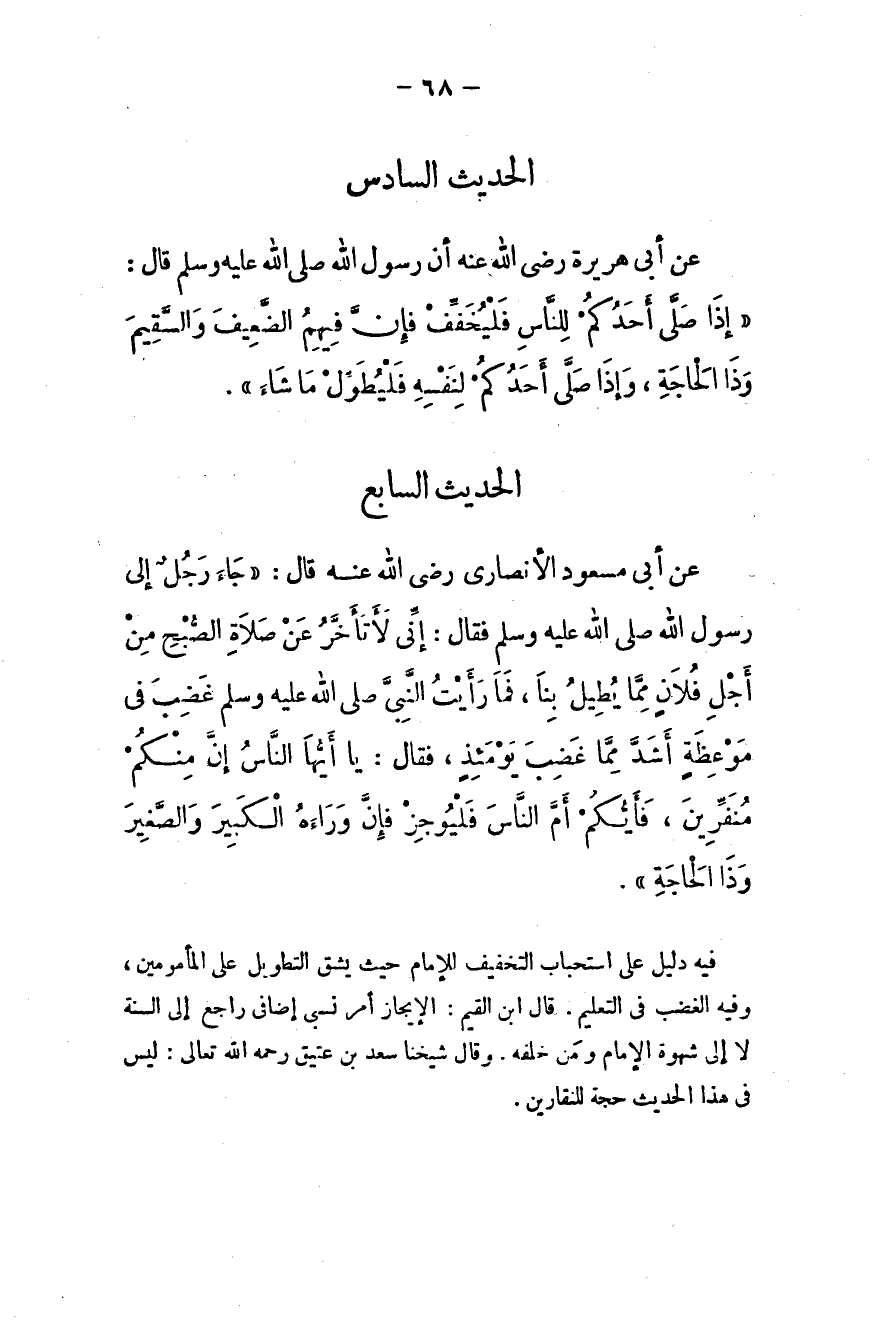 – ٦٨ –
الحديث السادس
عن أبى هريرة رضى الله عنه أن رسول الله صلى الله عليه وسلم قال :
« إِذَا صَلَّى أَحَدُكُمْ لِلنَّاسِ فَلْيُخَفِّفْ فإِنَّ فِيهِمُ الضَّعِيفَ وَالسَّقِيمَ
وَذَا الْحَاجَةِ ، وَإِذَا صَلَّى أَحَدُكُمْ لِنَفْسِهِ فَلْيُطَوِّلْ مَا شَاءَ » .
الحديث السابع
عن أبى مسعود الأنصارى رضى الله عنه قال : « جَاءَ رَجُلٌ إلى
رسول الله صلى الله عليه وسلم فقال : إِنِّى لَأَتَأَخَّرُ عَنْ صَلَاةِ الصُّبْحِ مِنْ
أَجْلِ فُلَانٍ مِمَّا يُطِيلُ بِنَا ، فَمَا رَأَيْتُ النَّبِىَّ صلى الله عليه وسلم غَضِبَ فى
مَوْعِظَةٍ أَشَدَّ مِمَّا غَضِبَ يَوْمَئِذٍ ، فقال : يا أَيُّهَا النَّاسُ إِنَّ مِنْكُمْ
مُنَفِّرِينَ ، فَأَيُّكُمْ أَمَّ النَّاسَ فَلْيُوجِزْ فإِنَّ وَرَاءَهُ الْكَبِيرَ وَالصَّغِيرَ
وَذَا الْحَاجَةِ » .
فيه دليل على استحباب التخفيف للإمام حيث يشق التطويل على المأمومين ،
وفيه الغضب فى التعليم . قال ابن القيم : الإيجاز أمر نسبى إضافى راجع إلى السنة
لا إلى شهوة الإمام ومَن خلفه . وقال شيخنا سعد بن عتيق رحمه الله تعالى : ليس
فى هذا الحديث حجة للنقارين .